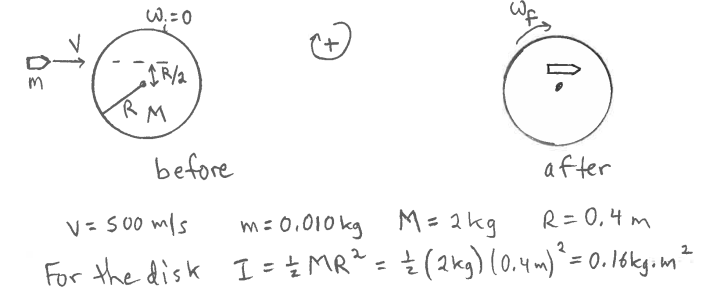 ωᵢ=0
V
m
R/2
R M
+
ω_f
before
after
V = 500 m/s m = 0.010 kg M = 2 kg R = 0.4 m
For the disk I = ½ MR² = ½ (2kg)(0.4m)² = 0.16 kg·m²